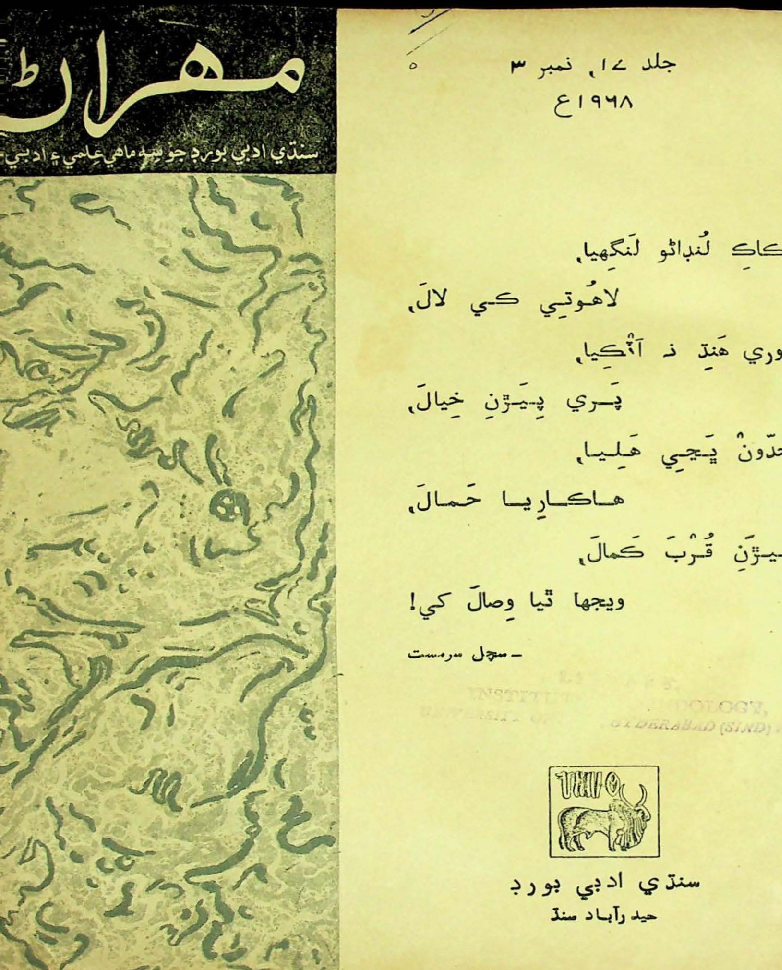 مهراڻ
سنڌي ادبي بورڊ جو سہ ماهي علمي ۽ ادبي
جلد ١٧، نمبر ٣
١٩٦٨ع
ڪاڪِ لُنڊاڻو لَنگهيا،
لاهُوتي کي لالَ،
وري هَنڌِ نہ
پَري پِيَڙنِ خِيالَ،
حدّونْ ڀَڃي هَليا،
هاڪارِيا حَمالَ،
قُرْبَ ڪَمالَ،
ويجها ٿيا وِصالَ کي!
ـ سچل سرمست
INSTITUTE OF SINDOLOGY,
UNIVERSITY OF HYDERABAD (SIND)
سنڌي ادبي بورڊ
حيدرآباد سنڌ